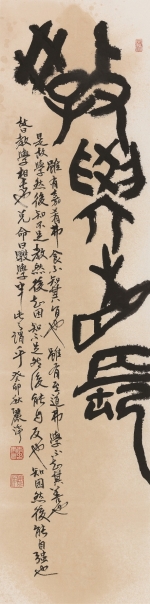 教學相長
雖有嘉肴弗食不知其旨也雖有至道弗學不知其善也
是故學然後知不足教然後知困知不足然後能自反也知困然後能自強也
故曰教學相長也兌命曰斆學半其此之謂乎癸卯秋